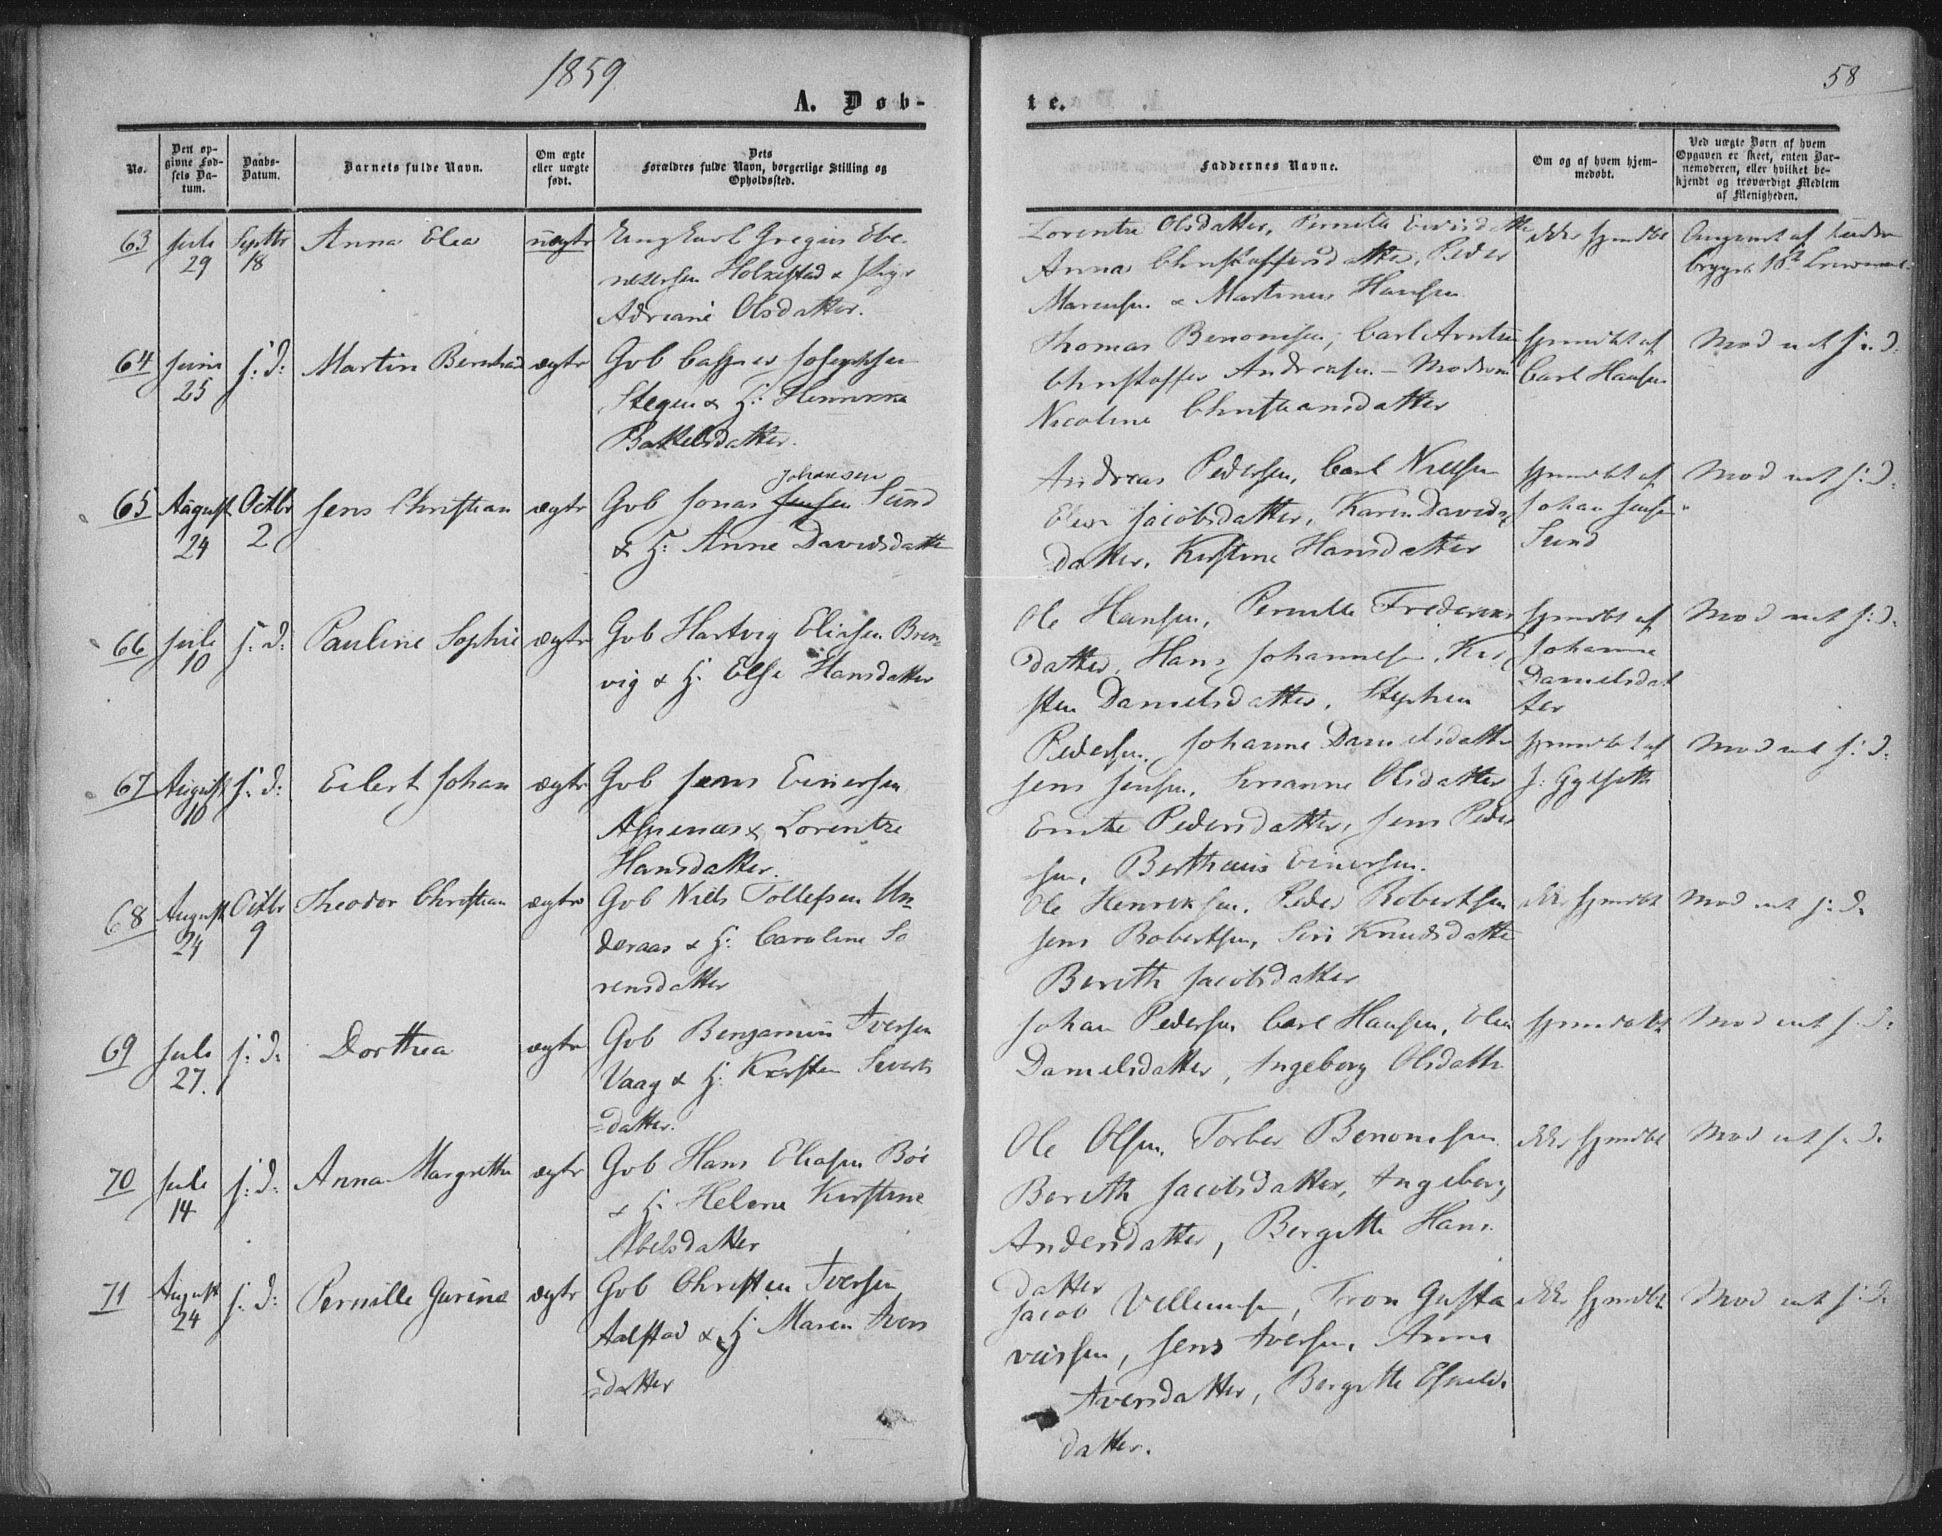 1859
58
A. Døb-
te.
No.
Den op-
givne Fød-
sels Da-
tum.
Daabs-
Datum.
Barnets fulde Navn.
Om ægte
eller uægte
født.
Dets
Forældres fulde Navn, borgerlige Stilling og
Opholdssted.
Faddernes Navne.
Om og af hvem hjem-
medøbt.
Ved uægte Børn af hvem
Opgaven er skeet, enten Bar-
nemoderen, eller hvilket be-
kjendt og troværdigt Medlem
af Menigheden.
63
Juli
29
Septbr
18
Anna Elea
uægte
Ungkarl Gregius Ebe-
nezersen Holkestad & Pige
Adriane Olsdatter.
Lorentze Olsdatter, Pernille
Anna Christoffersdatter, Peder
Marcussen & Martinus Hansen
ikke hjmdbt
64
Juni
25
s: d:
Martin Bernhard
ægte
Gvb Casper Josephsen
Stegen & H: Hennikka
Baltelsdatter.
Thomas Benonisen, Carl Arntsen
Christoffer Andreasen - Modren
Nicoline Christiansdatter
hjmdbt af
Carl Hansen
Mod ret s: d:
65
August
24
Octbr
2
Jens Christian
ægte
Johansen
Gvb Jonas Jensen Sund
& H: Anne Davidsdatter
Andreas Pedersen, Carl Nielsen
Elen Jacobsdatter, Karen Davids
datter, Kirstine Hansdatter
hjmdbt af
Johan Jensen
Sund
Mod ret s: d:
66
Juli
10
s: d:
Pauline Sophie
ægte
Gvb Hartvig Eliasen Bren-
vig & H: Else Hansdatter
Ole Hansen, Pernille Fredriks
datter, Hans Johannesen, Kir
sten Danielsdatter, Stephen
Pedersen, Johanne Danielsdatter
hjmdbt af
Johanne
Danielsdat
ter
Mod ret s: d:
67
August
10
s: d:
Eilert Johan
ægte
Gvb Jens Einersen
Aspenæs & Lorentze
Hansdatter.
Jens Jensen, Sirianne Olsdatter
Emte Pedersdatter, Jens Peder
sen, Berthæus Einersen.
hjmdbt af
J: Gylseth
Mod ret s: d:
68
August
24
Octbr
9
Theodor Christian
ægte
Gvb Niels Tollefsen Un
deraas & H: Caroline Sø
rensdatter
Ole Henriksen, Peder Robertsen
Jens Robertsen, Siri Knudsdatter
Bereth Jacobsdatter
ikke hjmdbt
Mod ret s: d:
69
Juli
27.
s: d:
Dorthea
ægte
Gvb Benjamin Iversen
Vaag & H: Kirsten Siverts
=datter.
Johan Pedersen Carl Hansen, Elen
Danielsdatter, Ingeborg Olsdatter
hjmdøbt
Mod ret s: d:
70
Juli
14
s: d:
Anna Margrethe
ægte
Gvb Hans Eliasen Bøe
& H: Helene Kirstine
Abelsdatter
Ole Olsen, Torber Benonisen
Bereth Jacobsdatter, Ingeborg
Andersdatter, Bergitte Hans
datter
ikke hjmdbt
Mod ret s: d:
71
August
24
s: d:
Pernille Gurine
ægte
Gvb Christen Iversen
Aalstad & H: Maren Ivers
=datter
Jacob Villumsen, Tron Gusta
vussen, Jens Iversen, Anne
Iversdatter, Bergitte
datter.
ikke hjmdbt
Mod ret s: d: